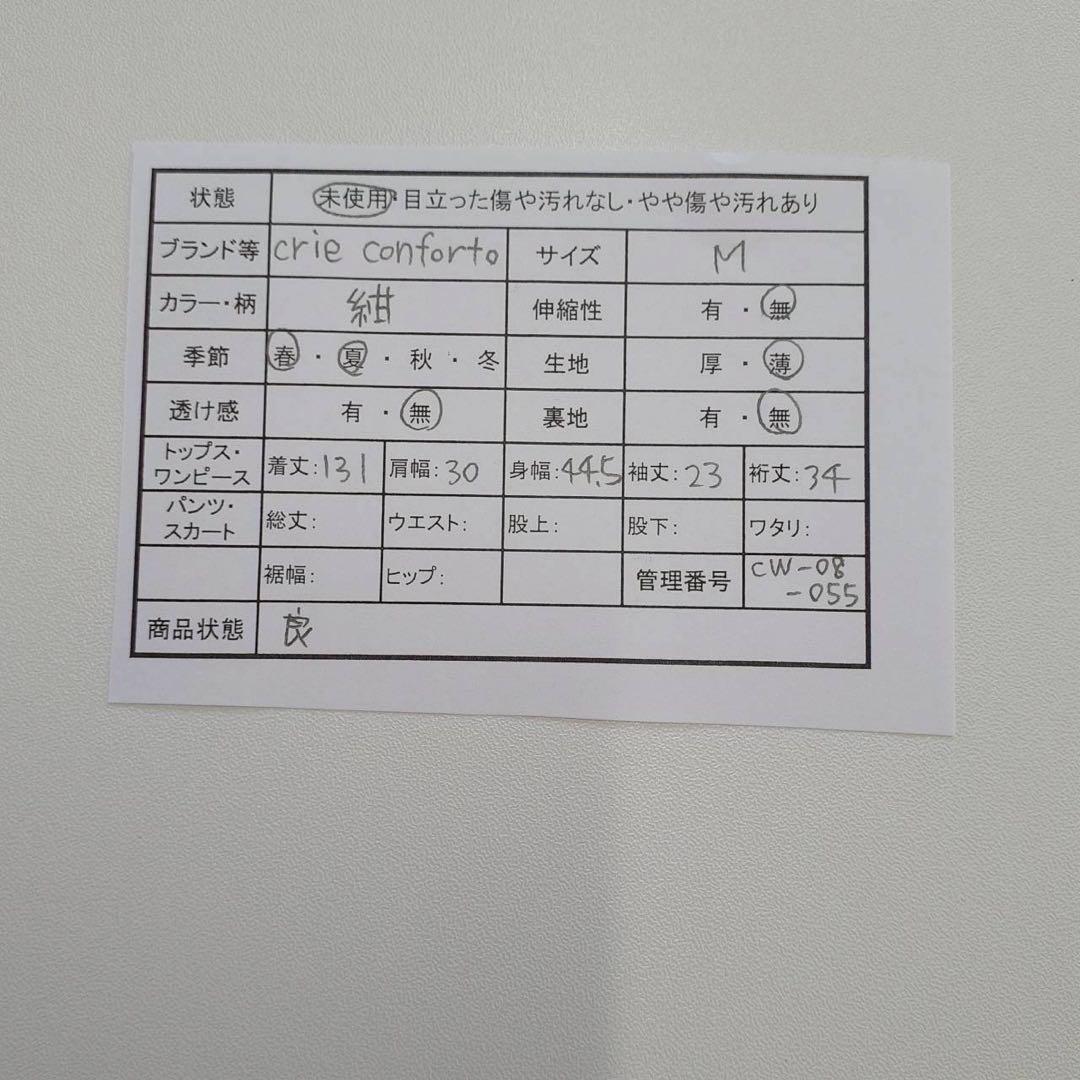 状態 未使用・目立った傷や汚れなし・やや傷や汚れあり
ブランド等 crie conforto サイズ M
カラー・柄 紺 伸縮性 有・無
季節 春・夏・秋・冬 生地 厚・薄
透け感 有・無 裏地 有・無
トップス・
ワンピース 着丈:131 肩幅:30 身幅:44.5 袖丈:23 裄丈:34
パンツ・
スカート 総丈: ウエスト: 股上: 股下: ワタリ:
裾幅: ヒップ: 管理番号 CW-08
-055
商品状態 良